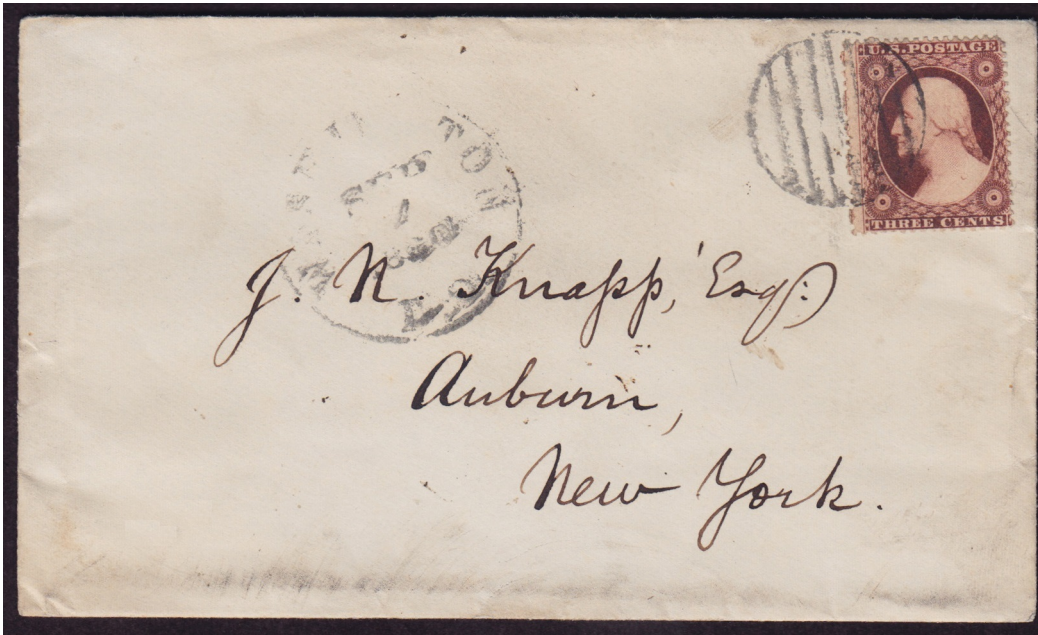 U.S. POSTAGE
THREE CENTS
SEP
J. N. Knapp, Esq.
Auburn,
New York.